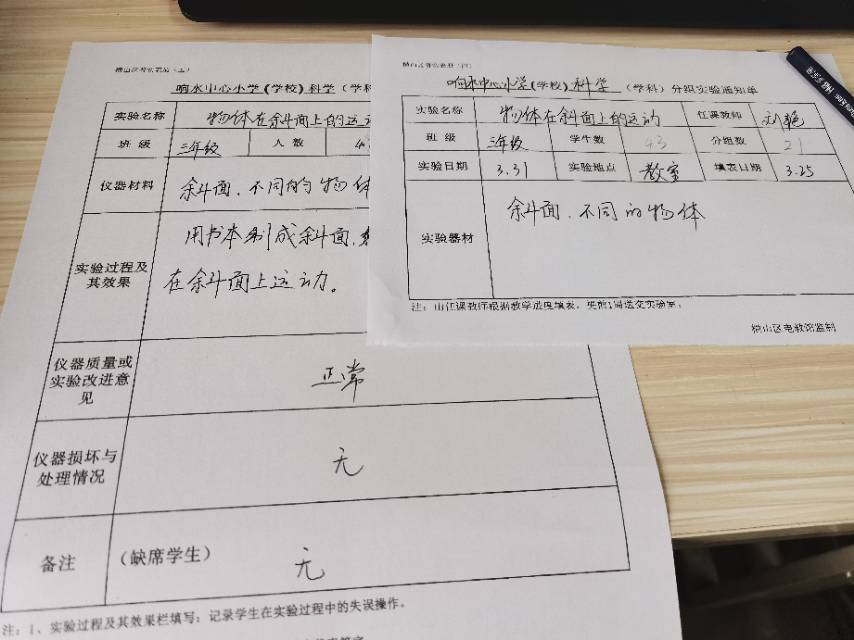 响水中心小学(学校)科学(学科
实验名称 物体在斜面上的运
班 级 三年级 人 数 4
仪器材料 斜面、不同的物体
实验过程及其效果 用书本制成斜面,
在斜面上运动。
仪器质量或实验改进意见 正常
仪器损坏与处理情况 无
备注 (缺席学生) 无
注:1、实验过程及其效果栏填写:记录学生在实验过程中的失误操作。
响水中心小学(学校)科学(学科)分组实验通知单
实验名称 物体在斜面上的运动 任课教师 刘艳
班 级 三年级 学生数 43 分组数 21
实验日期 3.31 实验地点 教室 填表日期 3.25
实验器材 斜面、不同的物体
注:由任课教师根据教学进度填表,提前1周送交实验室。
横山区电教馆监制